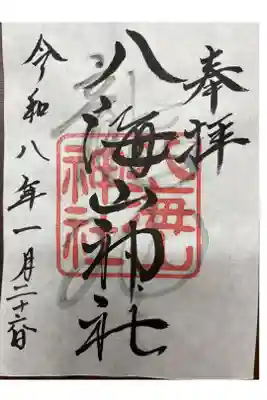 奉拝
八海山神社
令和八年一月二十六日
八海山
神社